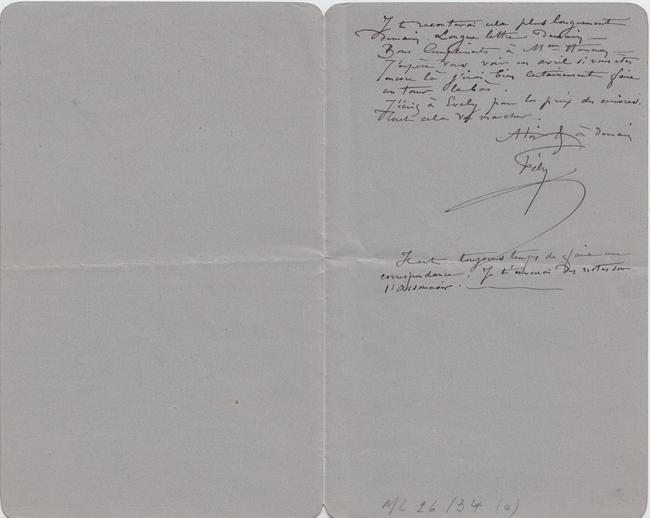 Je te raconterai cela plus longuement
Demain. Longue lettre Demain —
Bons Compliments à Mme
J'espère vous voir en avril si vous êtes
encore là j'irai bien certainement faire
un tour là bas.
J'écris à Evely pour les prix des cuivres.
Tout cela va marcher.
à Demain
Fély
Il est toujours temps de faire une
correspondance. Je t'enverrai Des notes sur
l'Assommoir.
ML 26/34 (a)